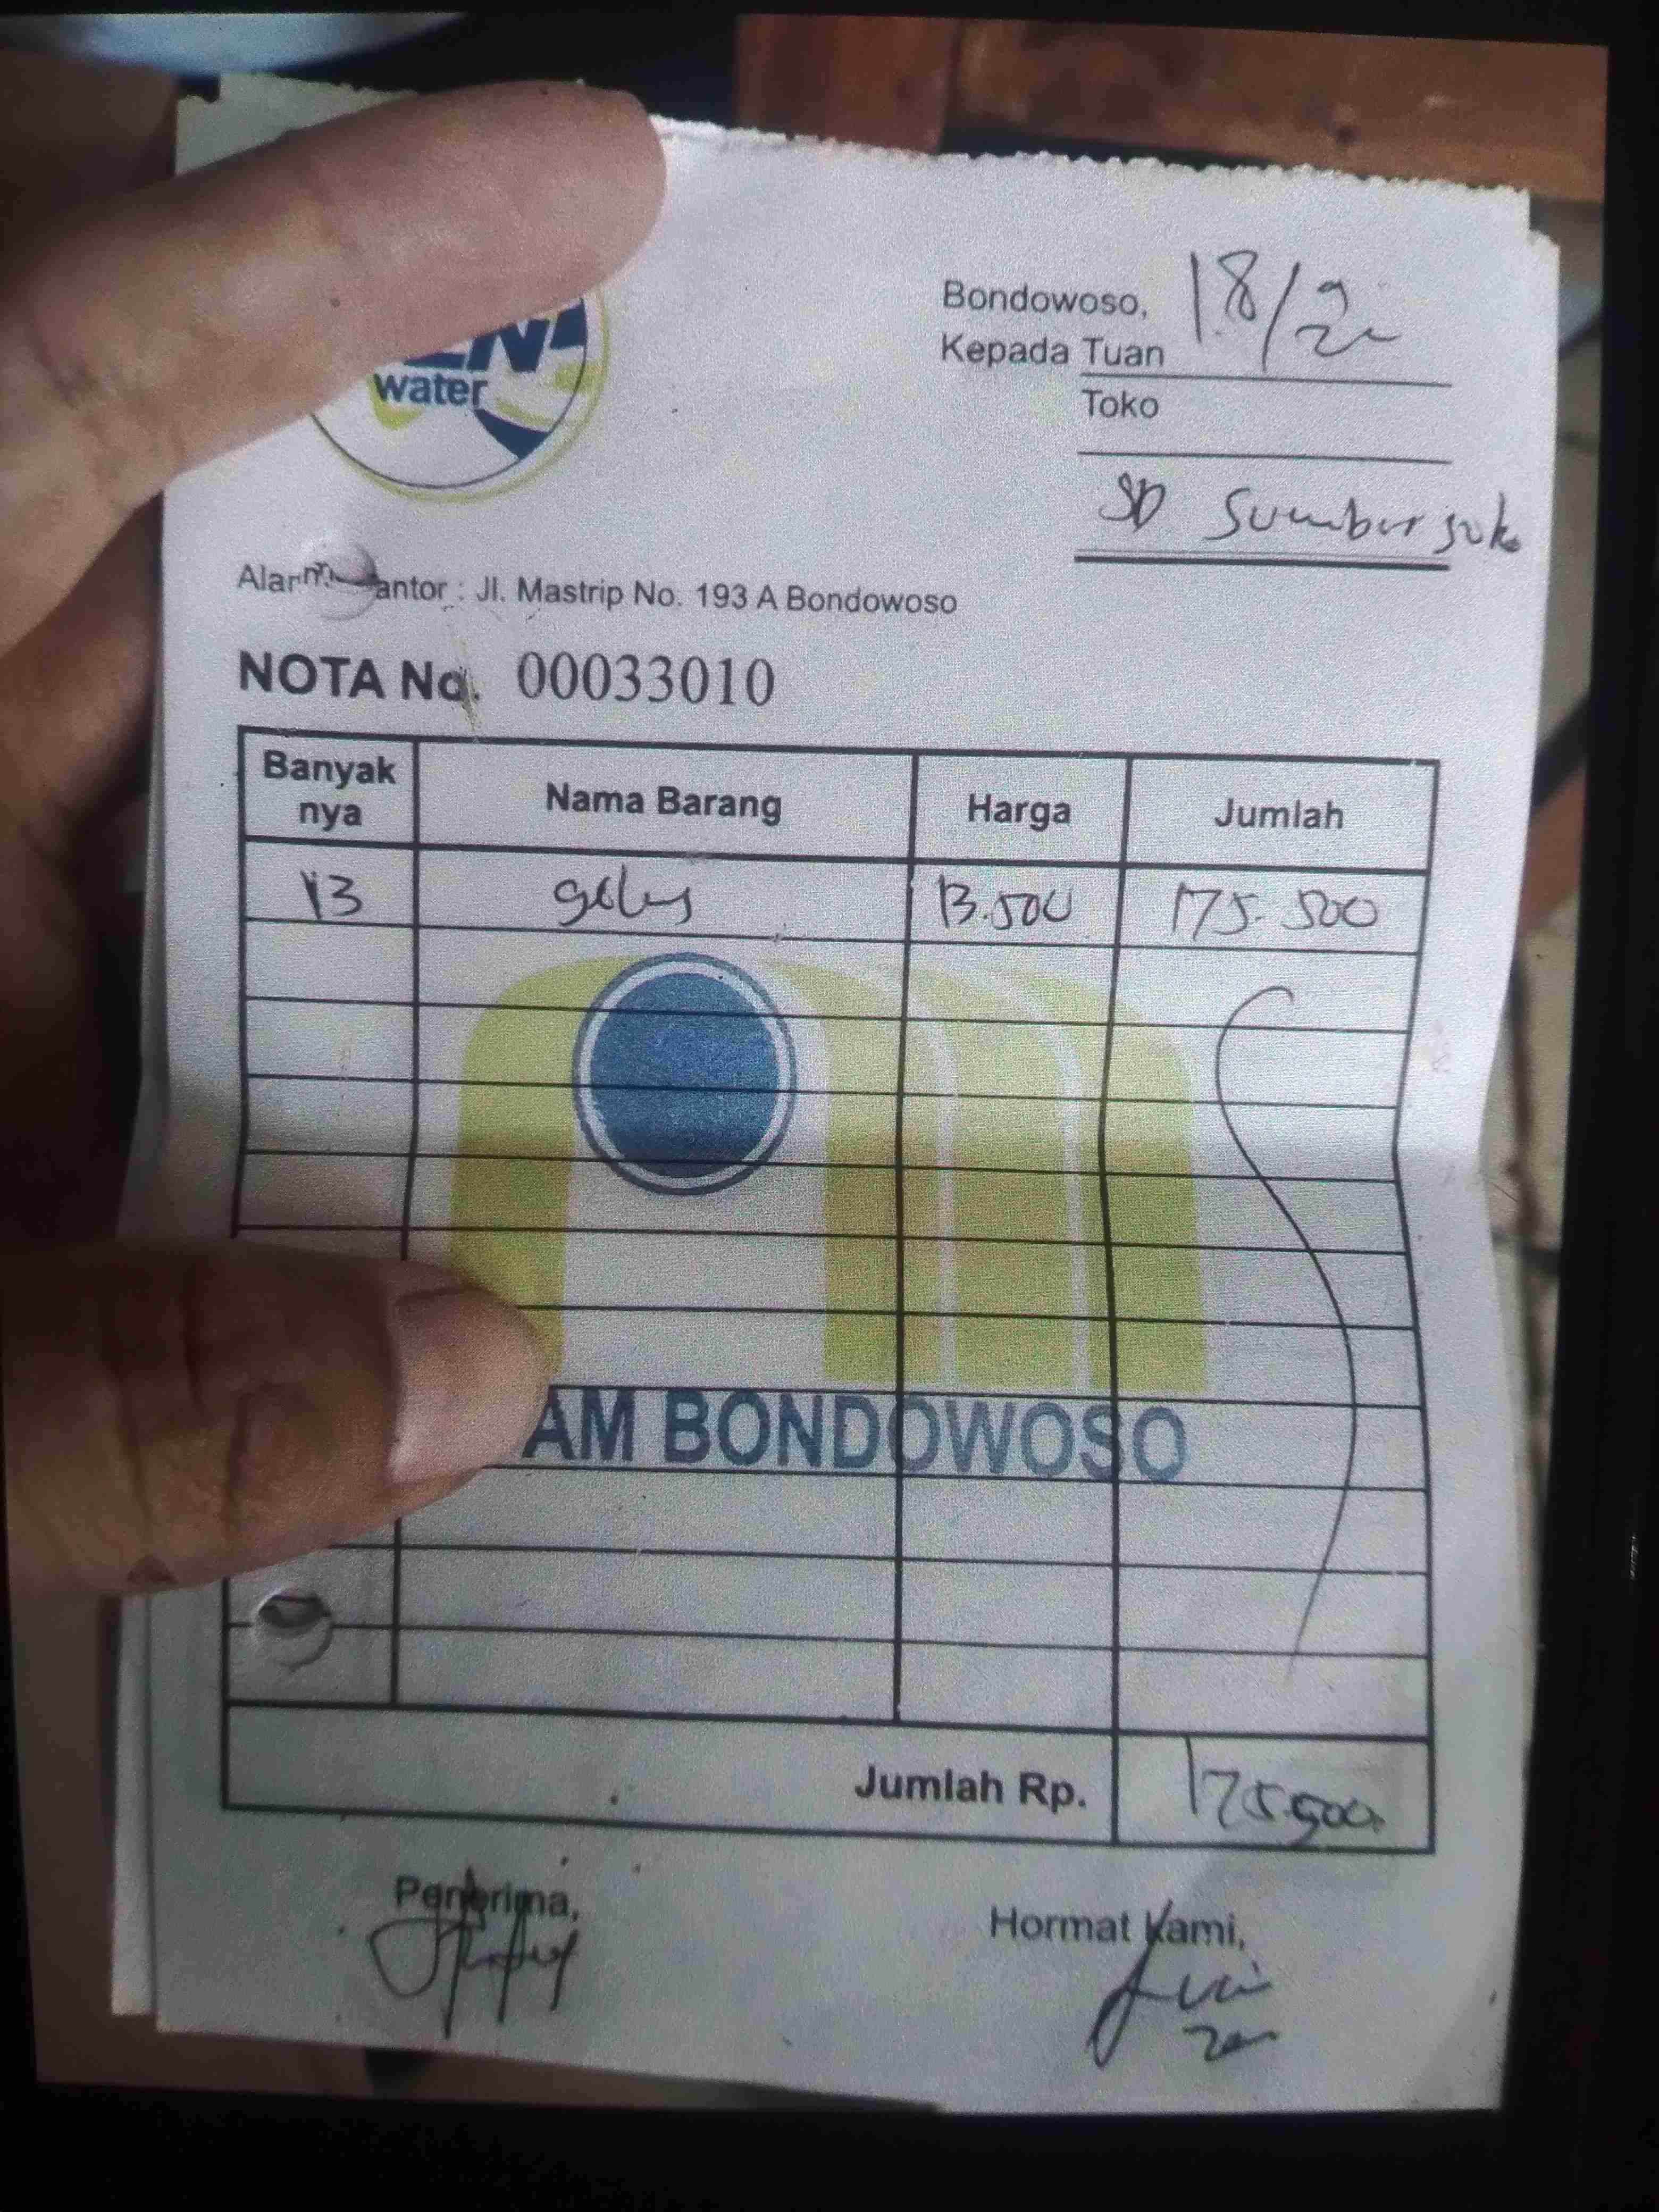 water
Bondowoso, 18/9
Kepada Tuan
Toko
SD Sumber suko
antor : Jl. Mastrip No. 193 A Bondowoso
NOTA No. 00033010
Banyak nya Nama Barang Harga Jumlah
13 galus 13.500 175.500
AM BONDOWOSO
Jumlah Rp. 175.500,
Penerima,
Hormat Kami,